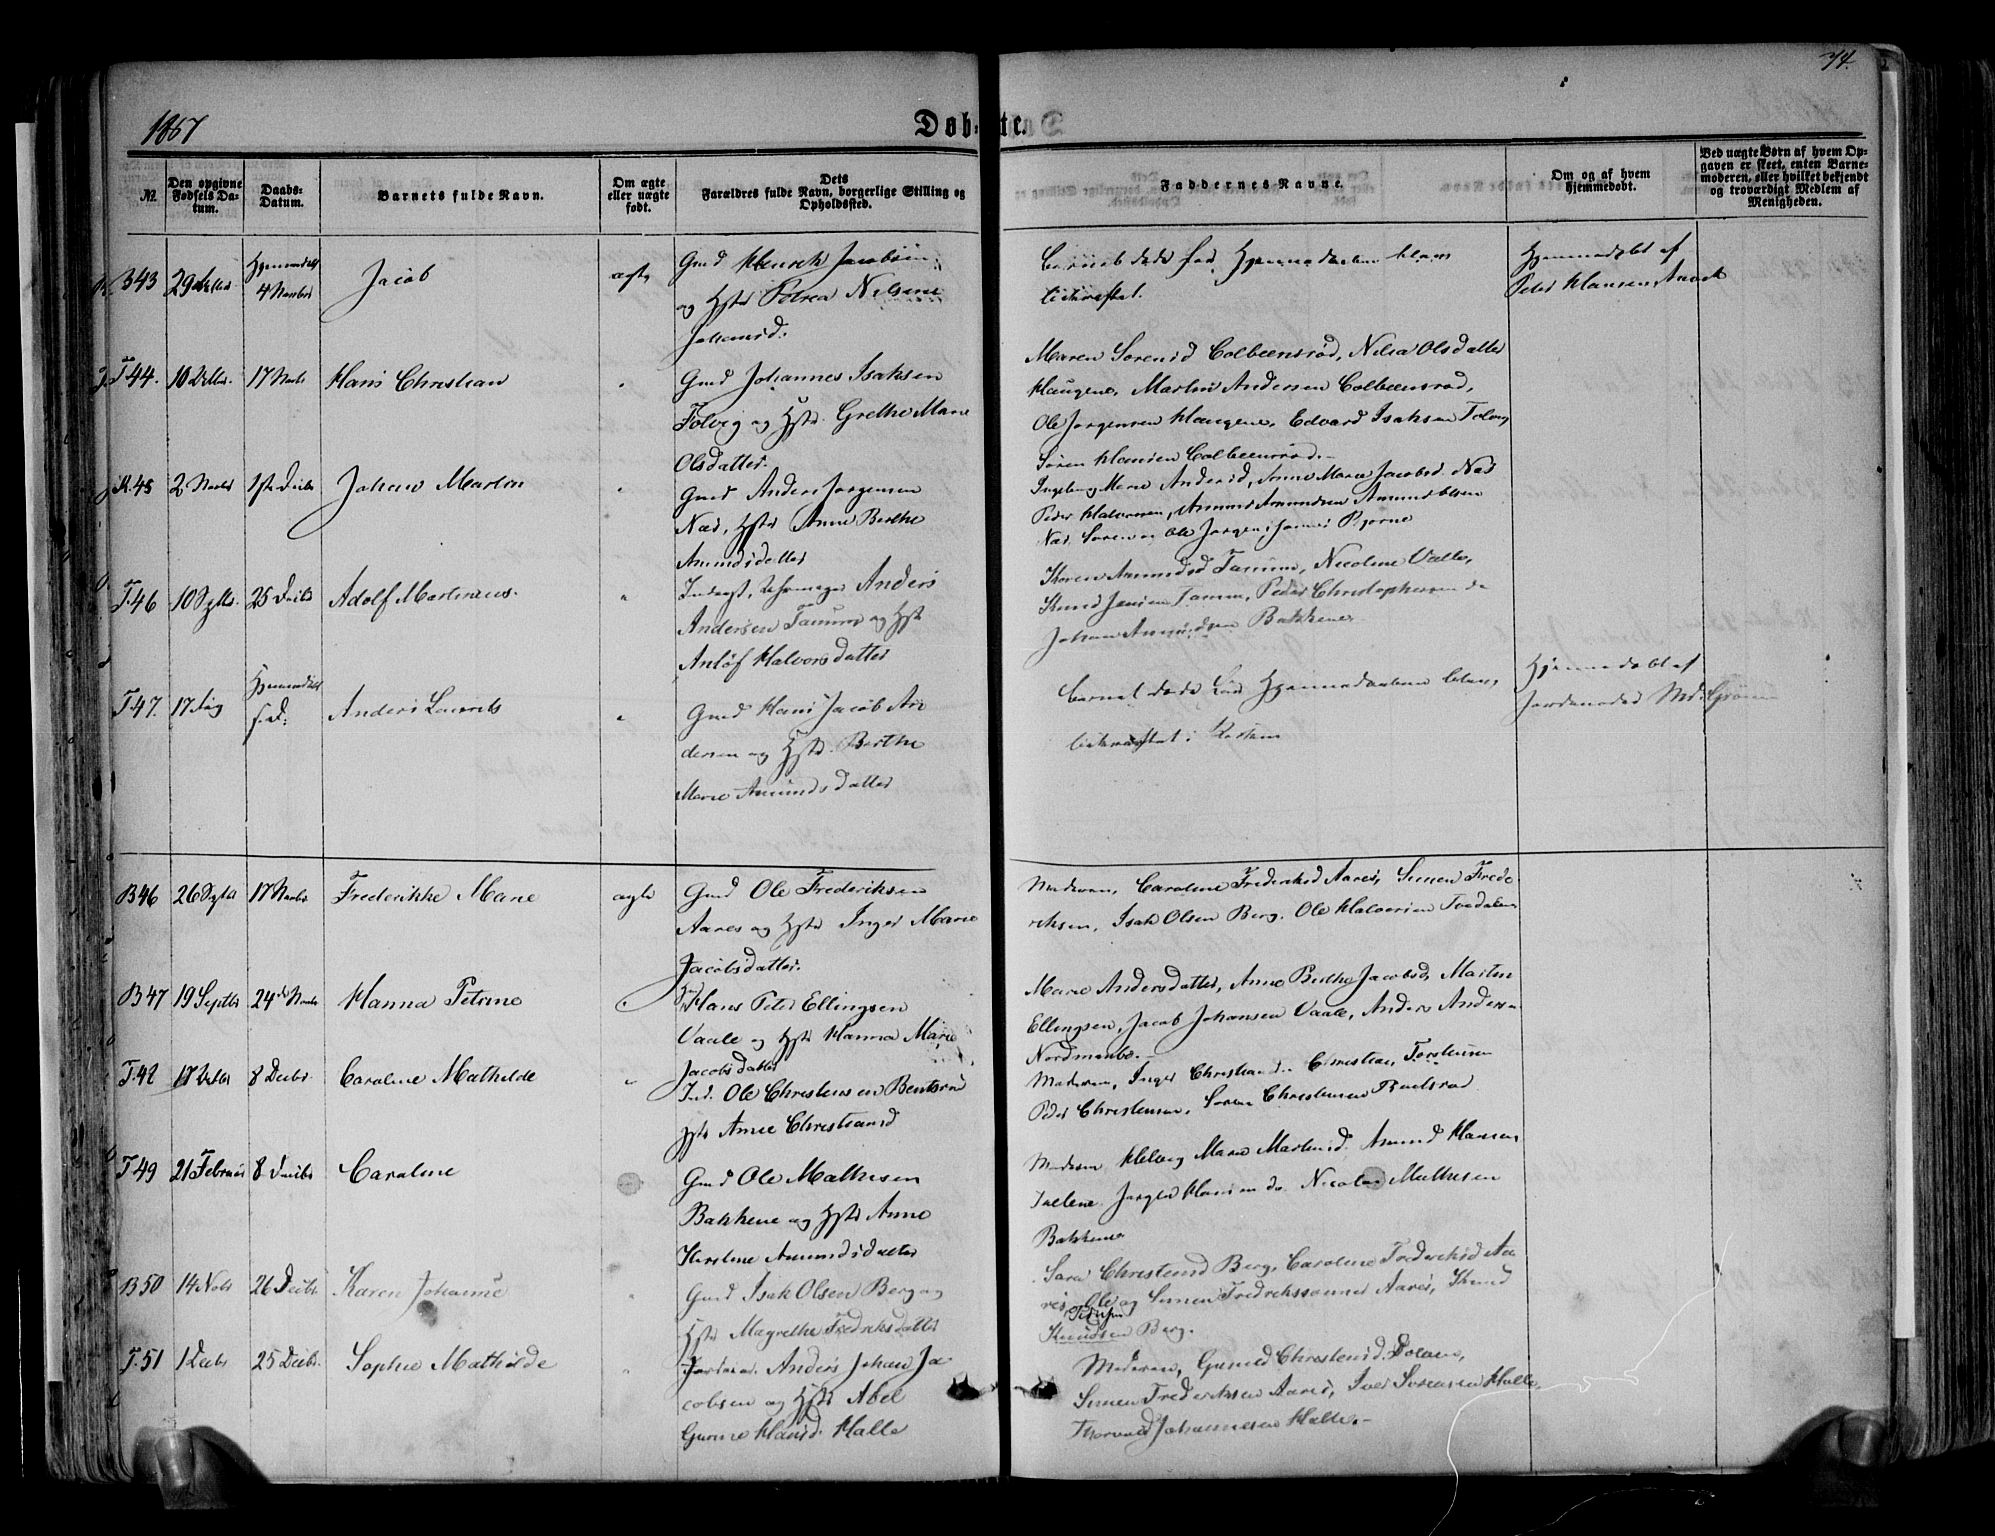 74.
1867
Døb-te.
№
Den opgivne Fødsels Da-tum.
Daabs-Datum.
Barnets fulde Navn.
Om ægte eller uægte født.
Dets Forældres fulde Navn, borgerlige Stilling og Opholdssted.
Faddernes Navne.
Om og af hvem hjemmedøbt.
Ved uægte Børn af hvem Op-gaven er skeet, enten Barne-moderen, eller hvilket bekjendt og troværdigt Medlem af Menigheden.
B 43
Hjemmedøbt
4 Novbr
Jacob
ægte
Gmd Henrik Jacobsen
og Hstr Petrea Nilsine
Johansd.
Barnet døde før Hjemmedaaben blev
bekræftet.
Hjemmedøbt af
Peder Hansen
T 44.
17 Novbr
Hans Christian
Gmd Johannes Isaksen
Tolvig og Hstr. Grethe Marie
Olsdatter.
Maren Sørensd Colbeensrød, Nilia Olsdatter
Haugene, Martin Andersen Colbeensrød,
Ole Jørgensen Haugene, Edvard Isaksen Tolvig
Søren Hansen Colbeensrød.-
K 45
2 Novbr
1ste Decbr
Johan Martin
Gmd Anders Jørgensen
Næs, Hstr Anne Berthe
Amundsdatter
Ingeborg Marie Andersd, Anne Marie Jacobsd Næs
Peder Halvorsen, Amund Amundsen
Næs Søren og Ole Jørgen
T 46
25 Decbr
Adolf Martinius
Anders
Andersen Tanum og Hst
Anlaf Halvorsdatter
Karen Amundsd Tanum, Nicoline Valle,
Knud Jensen Tanum, Peder Christophersen do
Johan Amundsen Bakkene
T 47.
17 Aug
Hjemmedøbt
s.D:
Anders Laurits
Gmd Hans Jacob An
dersen og Hstr. Berthe
Marie Amundsdatter
Barnet døde før Hjemmedaaben blev
bekræftet i Kirken
Hjemmedøbt af
Jordemoder Md. Grønn
B 46
26 Septbr
17 Novbr
Frederikke Marie
ægte
Gmd Ole Frederiksen
Aares og Hstr Inger Marie
Jacobsdatter.
Moderen, Caroline Frederiksd Aares, Simen Frede
riksen, Isak Olsen Berg, Ole Halvorsen Tvedalen
B 47
19 Septbr
24 Novbr
Hanna Petrine
Hans Peter Ellingsen
Vaale og Hstr Hanna Marie
Jacobsdatter
Marie Andersdatter, Anne Berthe Jacobsd, Martin
Ellingsen, Jacob Johansen Vaale, Anders Andersen
Nordmanbo.-
T 48
8 Decbr
Caroline Mathilde
Ind. Ole Christensen Bentsrød
Hstr Anne Christiansd
Moderen, Inger Christiansd. Christian Torstensen
Peder Christensen, Søren Christensen
T 49
21 Februar
8 Decbr
Caroline
Gmd Ole Mathesen
Bakkene og Hstr Anne
Kirstine Amundsdatter
Moderen Helvig Marie Martinsd. Amund Hansen
Jørgen Hansen do Nicolai Mathesen
Bakkene
B 50
14 Nobr
26 Decbr
Karen Johanne
Gmd Isak Olsen Berg og
Hstr Magrethe Fredriksdatter
Sara Christensd Berg, Caroline Frederiksd Aa
res, Ole og Simen Fredrikssønner Aares, Knud
Pedersen
Knudsen Berg.
T 51
1 Decbr
25 Decbr.
Sophie Mathilde
Anders Johan Ja
cobsen og Hstr Abel
Gurine Hansd. Halle
Moderen, Gunild Christensd.
Simen Frederiksen Aares, Iver Sørensen Halle,
Thorvald Johannesen Halle.-